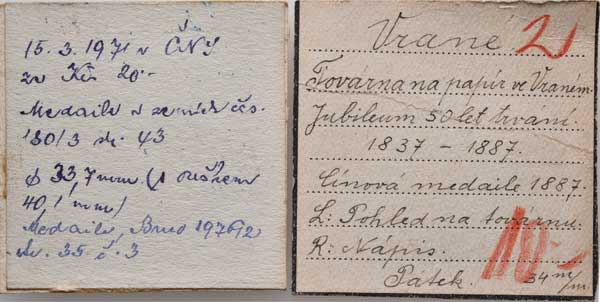 15. 3. 1971 v ČNS
za Kčs 20.-
Medaile z zemích čes.
180/3 str. 43
ø 33,7 mm (s ouškem
40,1 mm)
Medaile, Brno 1976/2
str. 35 č. 3
Vrané 2
Továrna na papír ve Vraném
Jubileum 50 let trvání.
1837 - 1887.
Cínová medaile 1887.
L: Pohled na továrnu.
R: Nápis. 10.-
Pátek. 34 m/m.